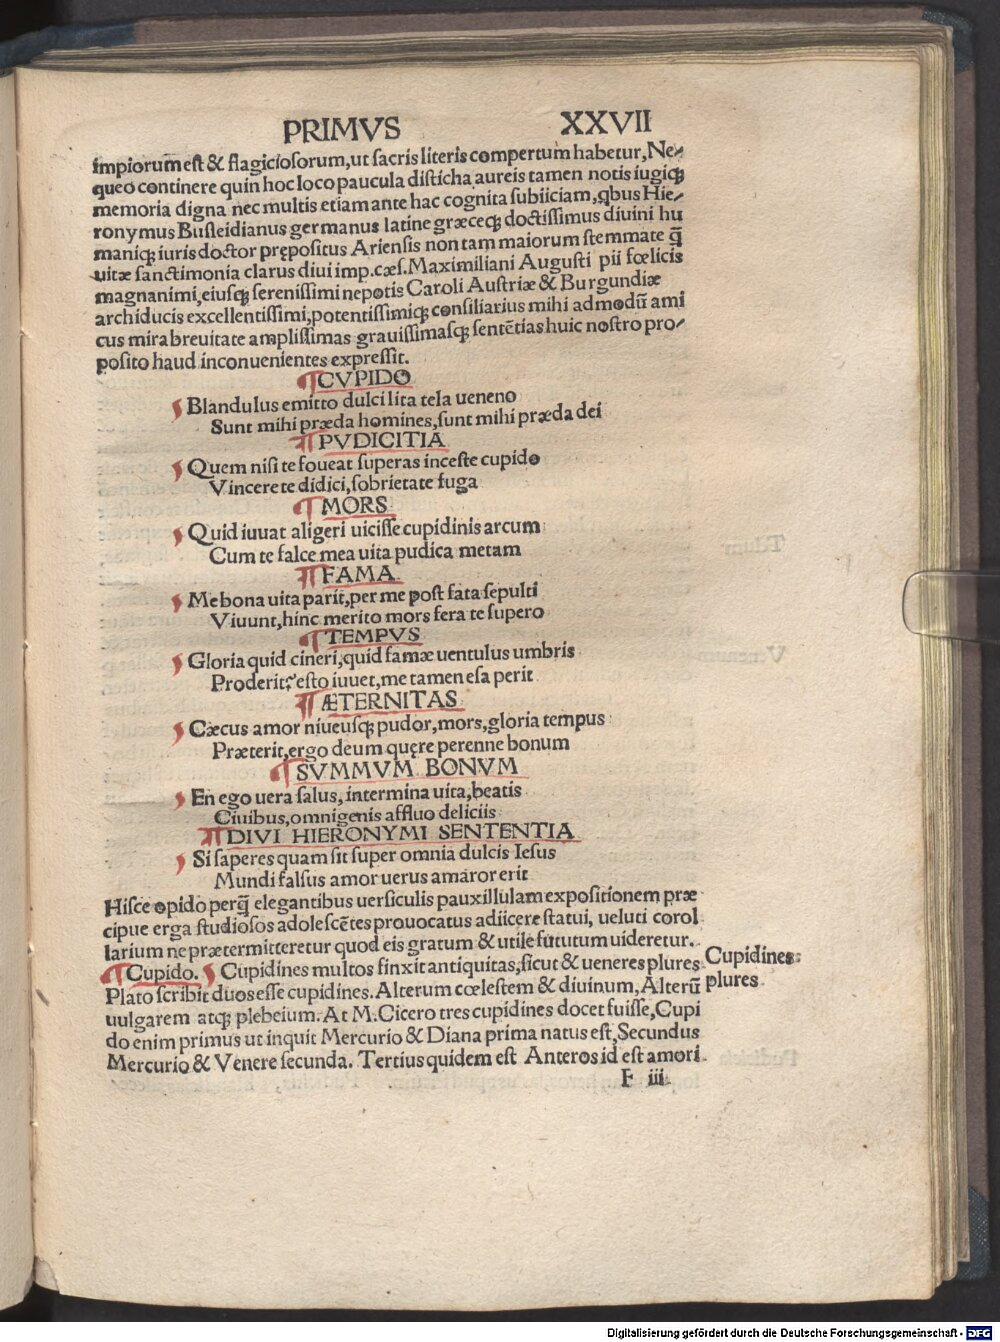 PRIMVS XXVII
impiorum̄ est & flagiciosorum, ut sacris literis compertum habetur, Ne⸗
queo continere quin hoc loco paucula disticha aureis tamen notis iugiq;
memoria digna nec multis etiam ante hac cognita subiiciam, qbus Hie⸗
ronymus Busleidianus germanus latine græceq; doctissimus diuini hu
maniq; iuris doctor prępositus Ariensis non tam maiorum stemmate q̄
uitæ sanctimonia clarus diui imp. cæs. Maximiliani Augusti pii fœlicis
magnanimi, eiusq; serenissimi nepotis Caroli Austriæ & Burgundiæ
archiducis excellentissimi, potentissimiq; consiliarius mihi admodū ami
cus mira breuitate amplissimas grauissimasq; sentētias huic nostro pro⸗
posito haud inconuenientes expressit.
¶CVPIDO
Blandulus emitto dulci lita tela ueneno
Sunt mihi præda homines, sunt mihi præda dei
¶PVDICITIA
Quem nisi te foueat superas inceste cupido
Vincere te didici, sobrietate fuga
¶MORS
Quid iuuat aligeri uicisse cupidinis arcum
Cum te falce mea uita pudica metam
¶FAMA
Me bona uita parit, per me post fata sepulti
Viuunt, hinc merito mors fera te supero
¶TEMPVS
Gloria quid cineri, quid famæ uentulus umbris
Proderit? esto iuuet, me tamen esa perit
¶ÆTERNITAS
Cæcus amor niueusq; pudor, mors, gloria tempus
Præterit, ergo deum quęre perenne bonum
¶SVMMVM BONVM
En ego uera salus, intermina uita, beatis
Ciuibus, omnigenis affluo deliciis
¶DIVI HIERONYMI SENTENTIA
Si saperes quam sit super omnia dulcis Iesus
Mundi falsus amor uerus amaror erit
Hisce opido perq̄ elegantibus uersiculis pauxillulam expositionem præ
cipue erga studiosos adolescētes prouocatus adiicere statui, ueluti corol
larium ne prætermitteretur quod eis gratum & utile fututum uideretur.
¶Cupido. Cupidines multos finxit antiquitas, sicut & ueneres plures Cupidines
Plato scribit duos esse cupidines. Alterum cœlestem & diuinum, Alterū plures
uulgarem atq; plebeium. At M. Cicero tres cupidines docet fuisse, Cupi
do enim primus ut inquit Mercurio & Diana prima natus est, Secundus
Mercurio & Venere secunda. Tertius quidem est Anteros id est amori
F iii
Digitalisierung gefördert durch die Deutsche Forschungsgemeinschaft - DFG